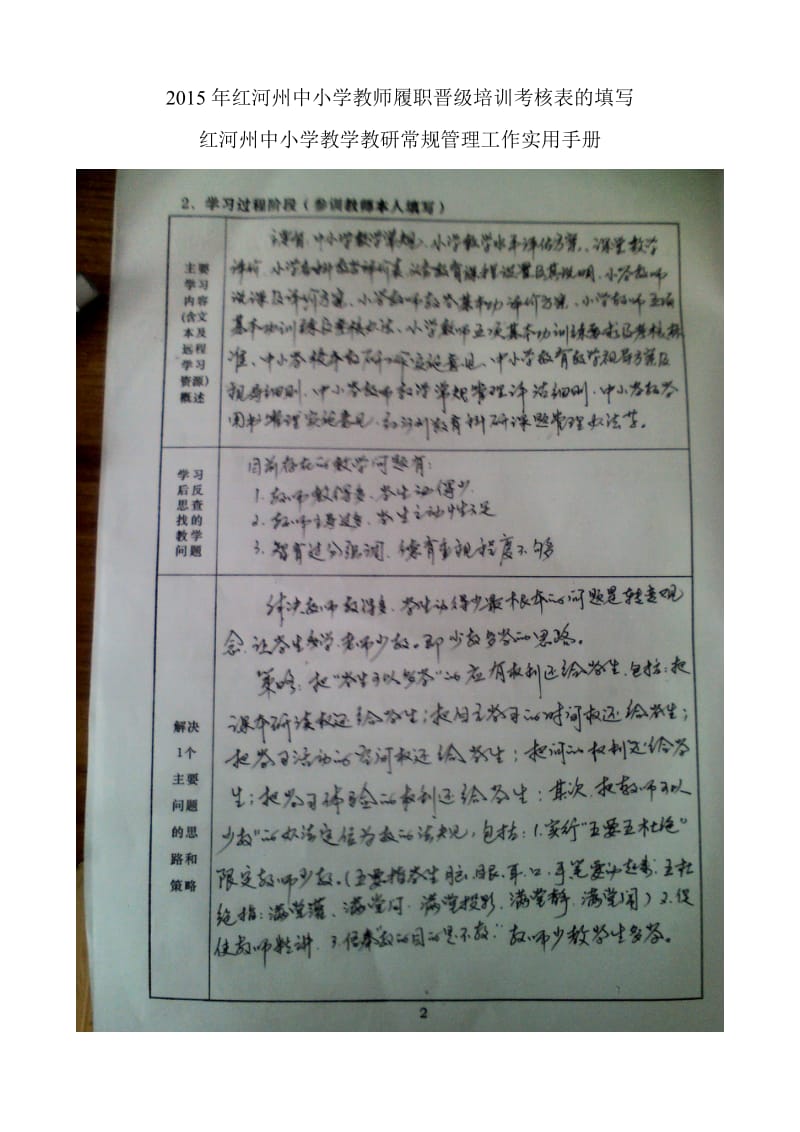 2015年红河州中小学教师履职晋级培训考核表的填写
红河州中小学教学教研常规管理工作实用手册
2、学习过程阶段（参训教师本人填写）
主要
学习
内容
(含文
本及
远程
学习
资源)
概述
中小学教学常规、小学教学水平评估方案、课堂教学
评价、小学各科教学评价表、义务教育课程设置及其说明、小学教师
说课及评价方案、小学教师教学基本功评价方案、小学教师五项
基本功训练及考核办法、小学教师五项基本功训练要求及考核标
准、中小学校本教研工作实施意见、中小学教育教学视导方案及
视导细则、中小学教师教学常规管理评估细则、中小学教学
用书管理实施意见、红河州教育科研课题管理办法等。
学习
后反
思查
找的
教学
问题
目前存在的教学问题有：
1. 教师教得多、学生动得少
2. 教师主导过多、学生主动性不足
3. 智育过分强调、德育重视程度不够
解决
1个
主要
问题
的思
路和
策略
解决教师教得多、学生动得少最根本的问题是转变观
念，让学生多学，老师少教。即少教多学的思路。
策略：把“学生可以多学”的应有权利还给学生，包括：把
课本研读权还给学生；把自主学习的时间权还给学生；
把学习活动的空间权还给学生；把问的权利还给学
生；把学习体验的权利还给学生；其次，把教师可以
少教”的办法定位为教的法规，包括：1.实行“五要五杜绝”
限定教师少教。（五要指学生脑、眼、耳、口、手笔要动起来；五杜
绝指：满堂灌、满堂问、满堂投影、满堂静、满堂闹）2.促
使教师精讲. 3.信奉“教的目的是不教”教师少教学生多学。
2